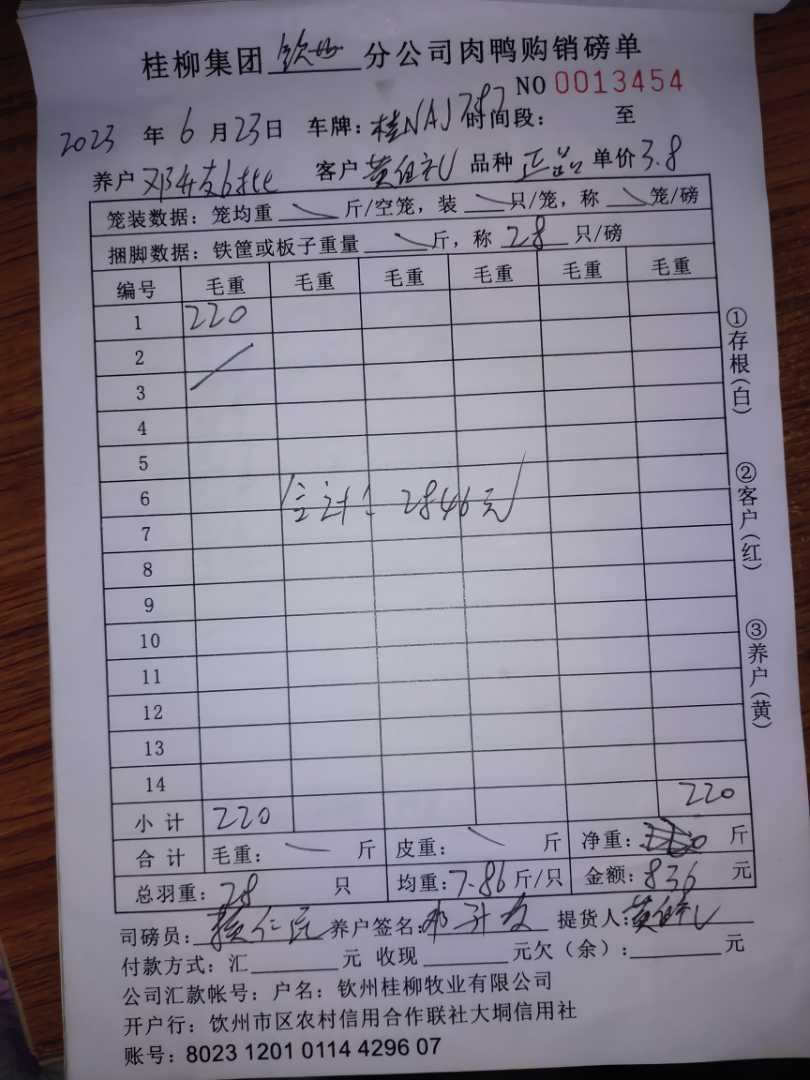 桂柳集团 钦州 分公司肉鸭购销磅单
NO 0013454
2023 年 6 月 23 日 车牌：桂NAJ787 时间段： 至
养户 客户 黄伯礼 品种 正品 单价 3.8
笼装数据：笼均重 斤/空笼，装 只/笼，称 笼/磅
捆脚数据：铁筐或板子重量 斤，称 28 只/磅
编号 毛重 毛重 毛重 毛重 毛重 毛重
1 220
2
3
4
5
6 合计：2846元
7
8
9
10
11
12
13
14
小计 220 220
合计 毛重： 斤 皮重： 斤 净重： 斤
总羽重：28 只 均重：7.86 斤/只 金额：836 元
司磅员： 养户签名：邓升友 提货人：黄伯礼
付款方式：汇 元 收现 元欠（余）： 元
公司汇款帐号：户名：钦州桂柳牧业有限公司
开户行：钦州市区农村信用合作联社大垌信用社
账号：8023 1201 0114 4296 07
①存根（白）
②客户（红）
③养户（黄）